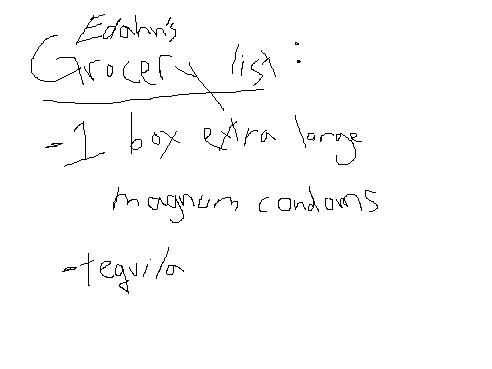 Edahn's
Grocery list:
-1 box extra large
magnum condoms
-tequila